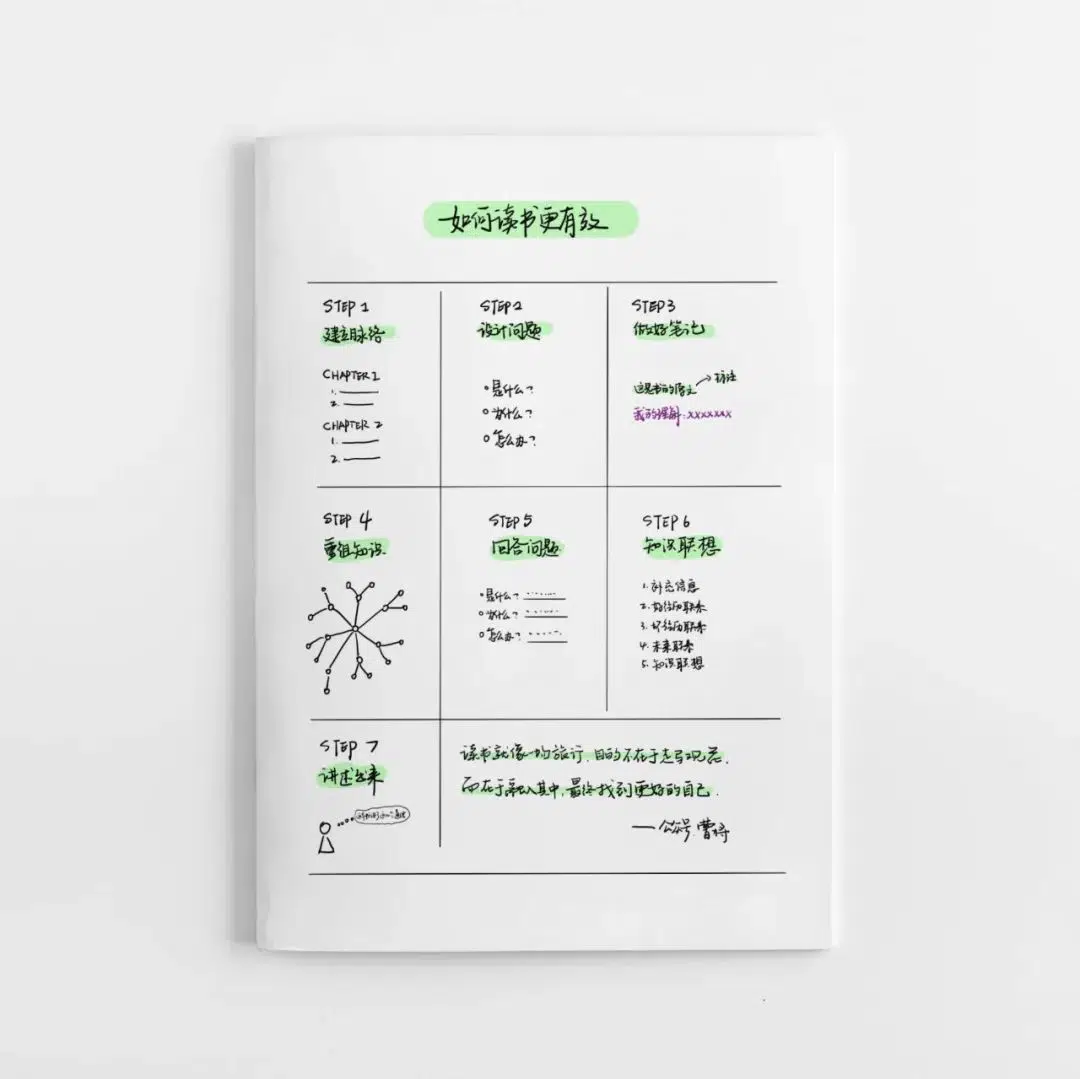 如何读书更有效
STEP 1
建立脉络
CHAPTER 1
1.
2.
CHAPTER 2
1.
2.
STEP 2
设计问题
是什么？
为什么？
怎么办？
STEP 3
做好笔记
这是书的原文
标注
我的理解：xxxxxxx
STEP 4
重组知识
STEP 5
回答问题
是什么？
为什么？
怎么办？
STEP 6
知识联想
1. 补充信息
2. 好经历联系
3. 坏经历联系
4. 未来联系
5. 知识联想
STEP 7
讲述出来
读书就像一场旅行，目的不在于走马观花，
而在于融入其中，最终找到更好的自己。
——公众号 曹将